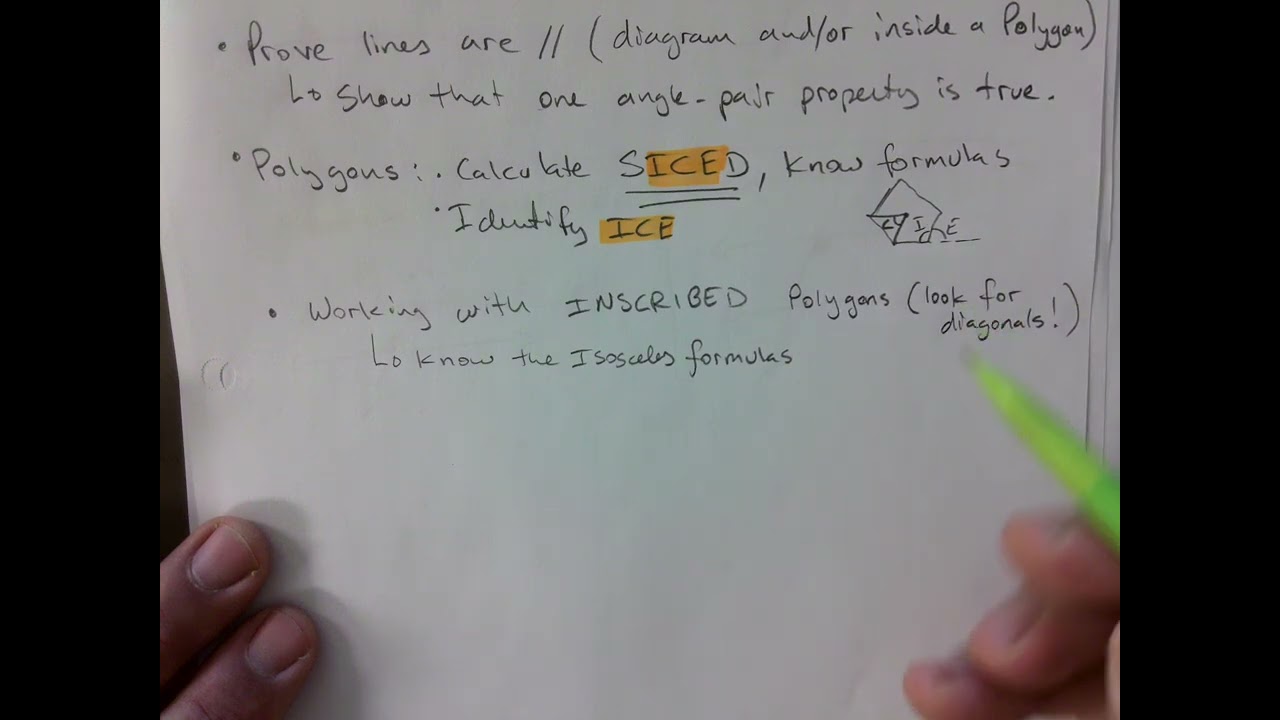 • Prove lines are // (diagram and/or inside a Polygon)
↳ Show that one angle-pair property is true.
• Polygons: • Calculate SICED, know formulas
• Identify ICE
C I E
• Working with INSCRIBED Polygons (look for diagonals!)
↳ know the Isosceles formulas